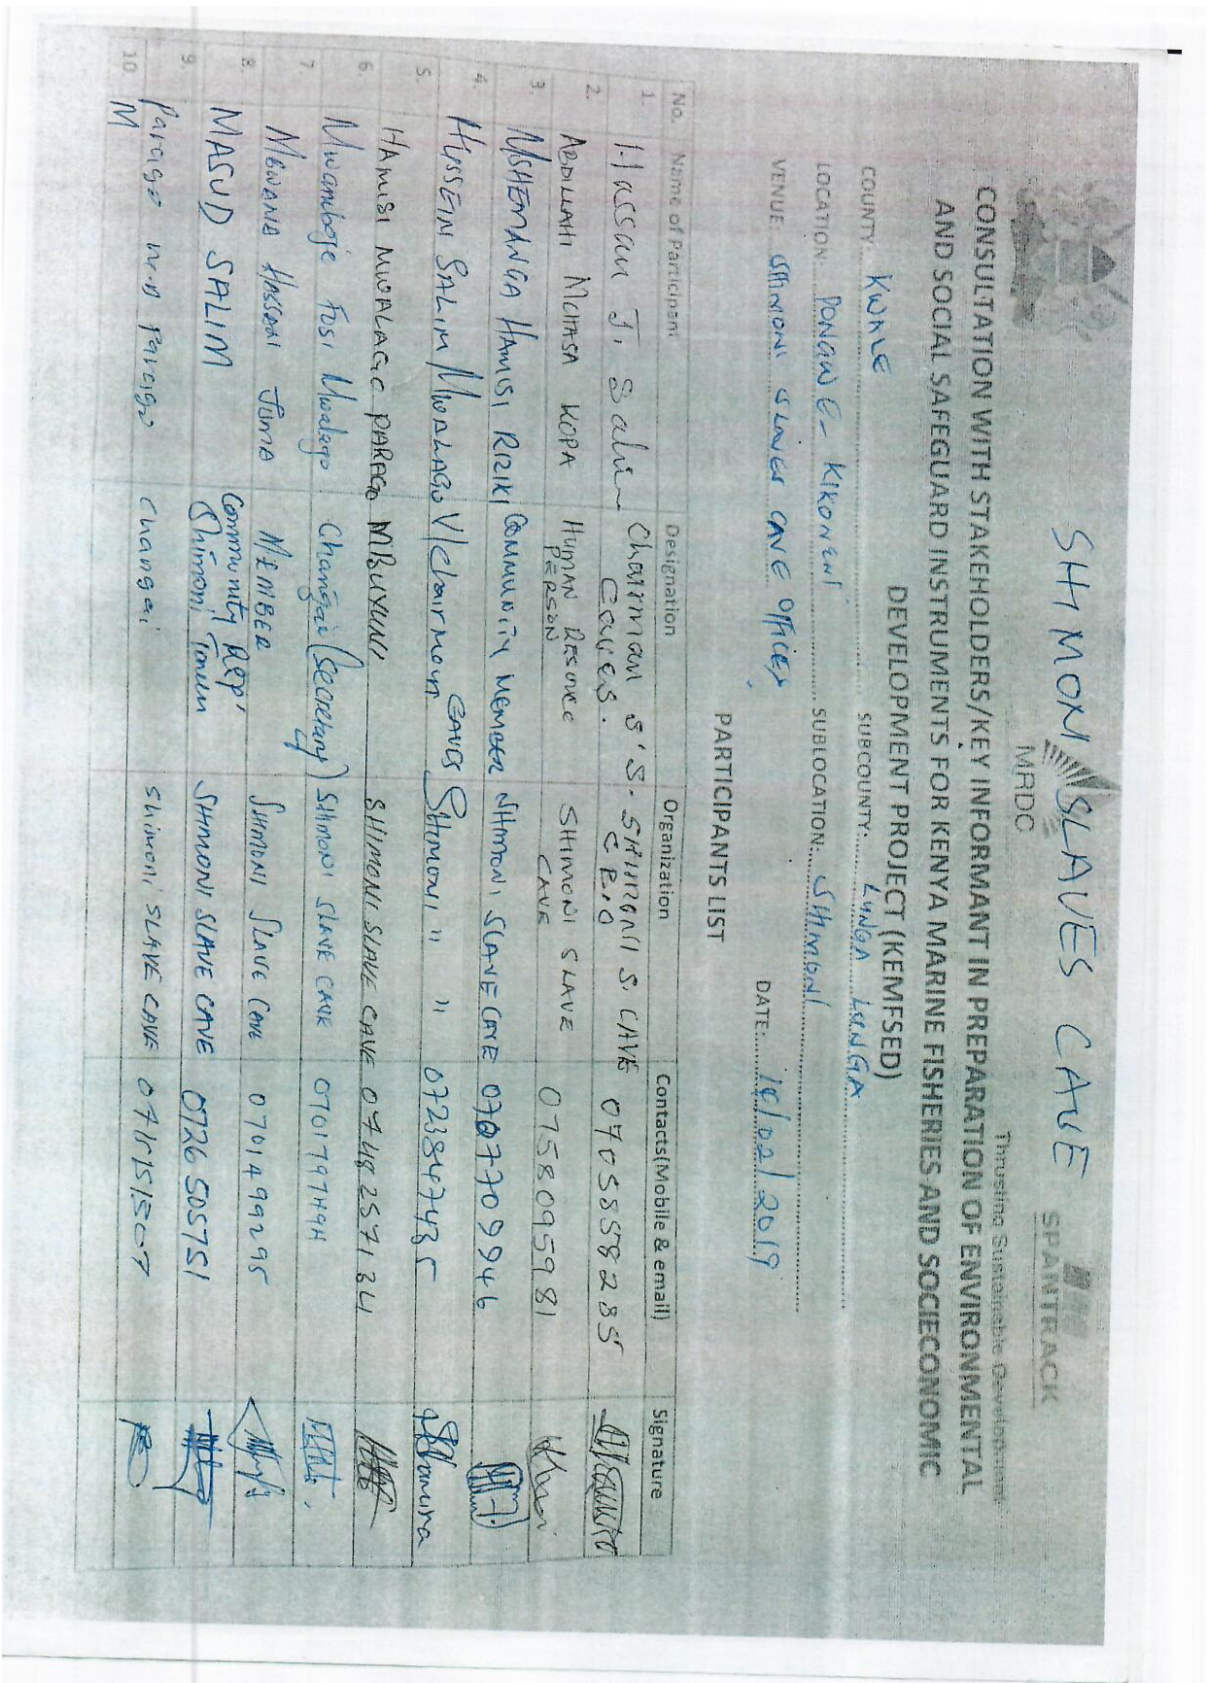 SHMONI SLAVES CAVE
MRDC
SPANTRACK
Thrusting Sustainable Development
CONSULTATION WITH STAKEHOLDERS/KEY INFORMANT IN PREPARATION OF ENVIRONMENTAL
AND SOCIAL SAFEGUARD INSTRUMENTS FOR KENYA MARINE FISHERIES AND SOCIECONOMIC
DEVELOPMENT PROJECT (KEMFSED)
COUNTY: KWALE SUBCOUNTY: LUNGA LUNGA
LOCATION: PONGWE - KIKONENI SUBLOCATION: SHIMONI
VENUE: SHIMONI SLAVES CAVE OFFICES DATE: /02/2019
PARTICIPANTS LIST
No. Name of Participant Designation Organization Contacts(Mobile & email) Signature
1. Hassan J. Salim Chairman S'S. Caves. SHIMONI S. CAVE CBO 0705858285
2. ABDILLAHI MCHASA KOPA HUMAN RESOURCE PERSON SHIMONI SLAVE CAVE 0758095981
3. MSHENANGA HAMISI RIZIKI COMMUNITY MEMBER SHIMONI SLAVE CAVE 0707709946
4. HUSSEIN SALIM MWALAGO V/Chairman CAVES SHIMONI " " 0723847435
5. HAMISI MWALAGO PARAGO MBUYUNI SHIMONI SLAVE CAVE 0748257134
6. Mwamboje Fusi Mwalago Changai (Secretary) SHIMONI SLAVE CAVE
7. MGWANA HASSANI JUMA MEMBER SHIMONI SLAVE CAVE 0701499295
8. MASUD SALIM Community Rep' Shimoni SHIMONI SLAVE CAVE 0726505751
9. Parago Parago Changai Shimoni SLAVE CAVE
10. M